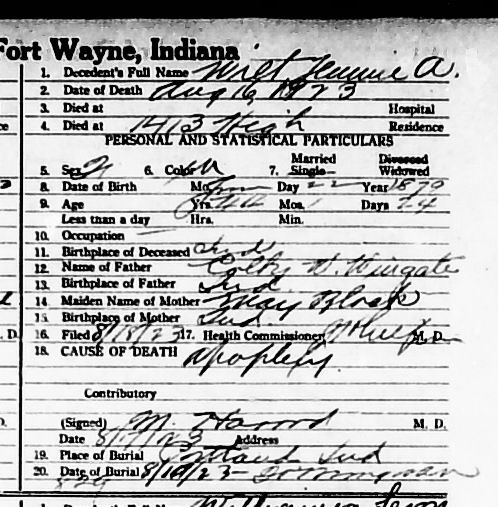 Fort Wayne, Indiana
1. Decedent's Full Name Wilt Jennie A.
2. Date of Death Aug 16, 1923
3. Died at Hospital
4. Died at 1413 High Residence
PERSONAL AND STATISTICAL PARTICULARS
5. Sex F 6. Color W 7. Married Single Divorced Widowed
8. Date of Birth Mo. Day 22 Year 1879
9. Age Yrs. 44 Mos. Days 24
Less than a day Hrs. Min.
10. Occupation
11. Birthplace of Deceased Ind
12. Name of Father W. Wingate
13. Birthplace of Father Ind.
14. Maiden Name of Mother May
15. Birthplace of Mother Ind.
16. Filed 8/18/23 17. Health Commissioner M. D.
18. CAUSE OF DEATH Apoplexy.
Contributory
(Signed) M. M. D.
Date 8/17/23 Address
19. Place of Burial Ind
20. Date of Burial 8/19/23